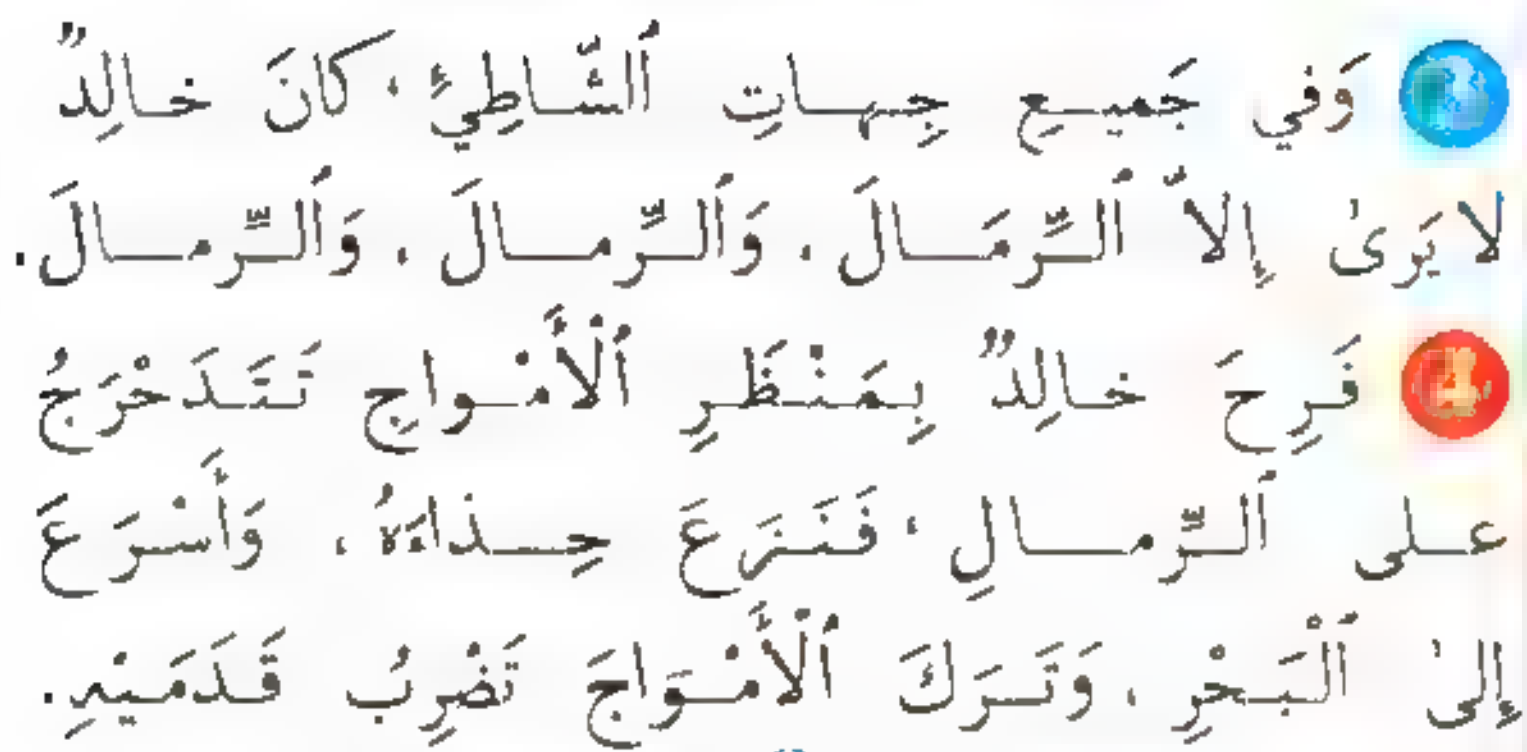 وَفي جَميـعِ جِهـاتِ ٱلشّـاطِئِ ، كانَ خـالِدٌ
لا يَرىٰ إِلاّ ٱلـرِّمَـالَ ، وَٱلـرِّمـالَ ، وَٱلـرِّمـالَ .
فَـرِحَ خـالِدٌ بِـمَـنْـظَـرِ ٱلْأَمْـواجِ تَـتَـدَحْرَجُ
عـلى ٱلـرِّمـالِ ، فَـنَـزَعَ حِـذاءَهُ ، وَأَسْـرَعَ
إِلىٰ ٱلْبَـحْرِ ، وَتَـرَكَ ٱلْأَمْـوَاجَ تَضْرِبُ قَدَمَـيْـهِ .